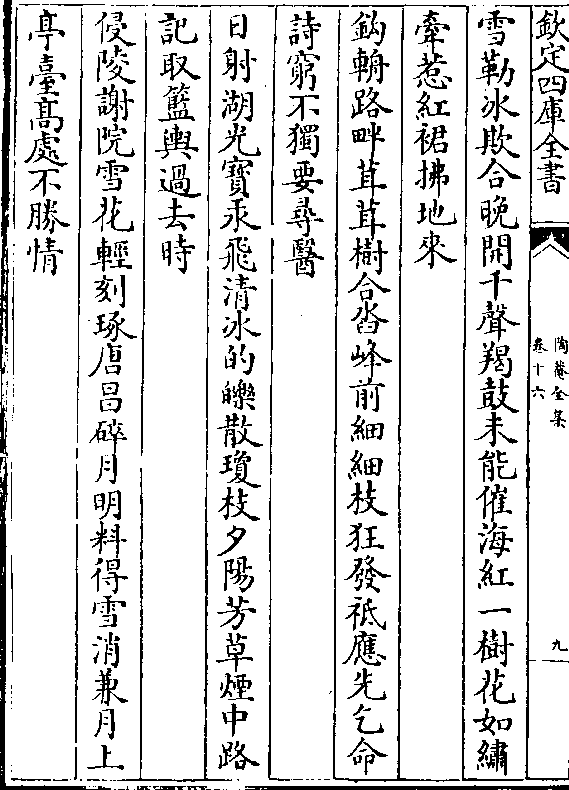 欽定四庫全書
陶菴全集
卷十六
九
雪勒冰欺合晚開千聲羯鼓未能催海紅一樹花如繡
牽惹紅裙拂地來
鈎輈路畔茸茸樹合沓峰前細細枝狂發祗應先乞命
詩窮不獨要尋醫
日射湖光寶汞飛清冰的皪散瓊枝夕陽芳草煙中路
記取籃輿過去時
侵陵謝院雪花輕刻琢唐昌碎月明料得雪消兼月上
亭臺髙處不勝情